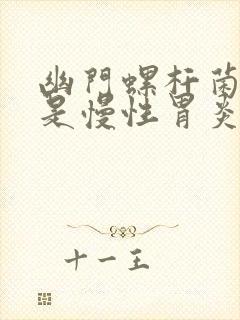 幽門螺杆菌
是慢性胃炎
十一王